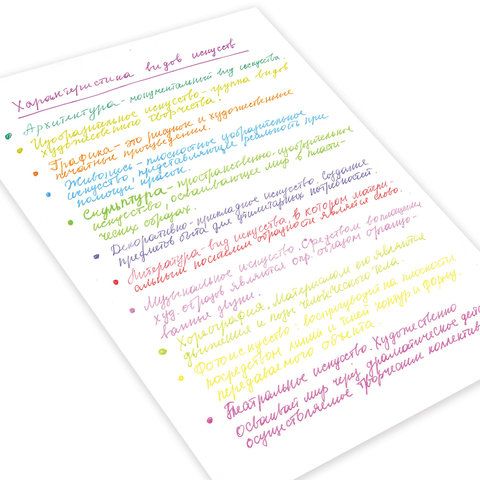 Характеристика видов искусств
Архитектура - монументальный вид искусства.
Изобразительное искусство - группа видов
художественного творчества:
Графика - это рисунок и художественные
печатные произведения.
Живопись - плоскостное изобразительное
искусство, представляющее реальность при
помощи красок.
Скульптура - пространственно-изобразительное
искусство, осваивающее мир в пласти-
ческих образах.
Декоративно-прикладное искусство. Создание
предметов быта для утилитарных потребностей.
Литература - вид искусства, в котором матери-
альным носителем образности является слово.
Музыкальное искусство. Средством воплощения
худ. образов являются опр. образом организо-
ванные звуки.
Хореография. Материалом ею являются
движения и позы человеческого тела.
Фотоискусство: воспроизводит на плоскости
посредством линии и тени контур и форму
передаваемого объекта.
Театральное искусство. Художественно
осваивает мир через драматическое дей
осуществляемое творческим коллектив